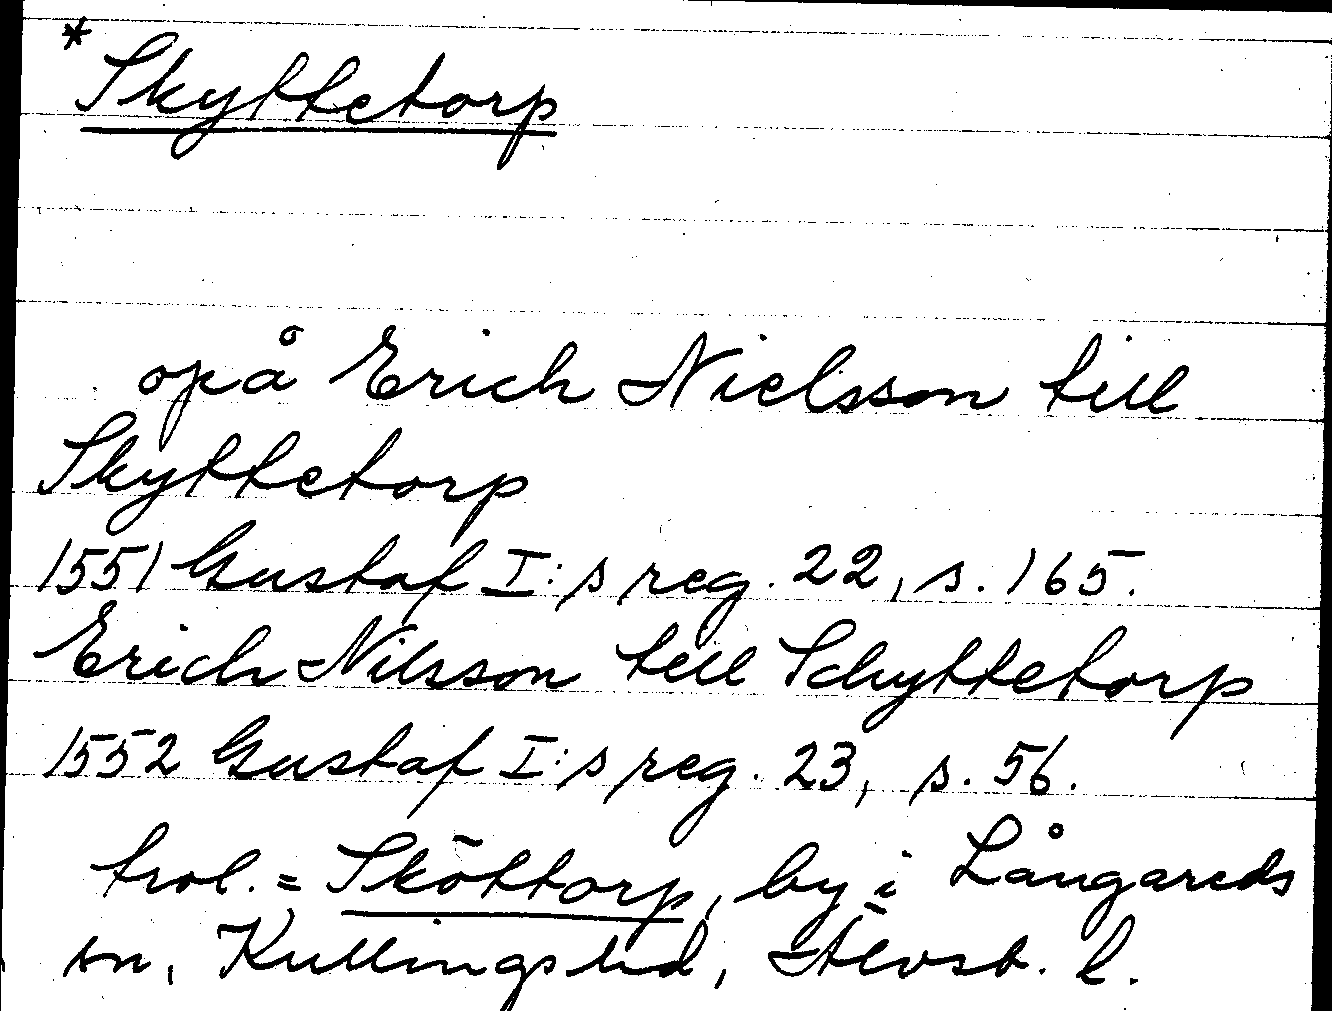 * Skyttetorp
opå Erich Nielsson till
Skyttetorp
1551 Gustaf I:s reg. 22, s. 165.
Erich Nilsson till Schyttetorp
1552 Gustaf I:s reg. 23, s. 56.
trol. = Sköttorp, by i Långareds
sn, Kullings hd, Älvsb. l.